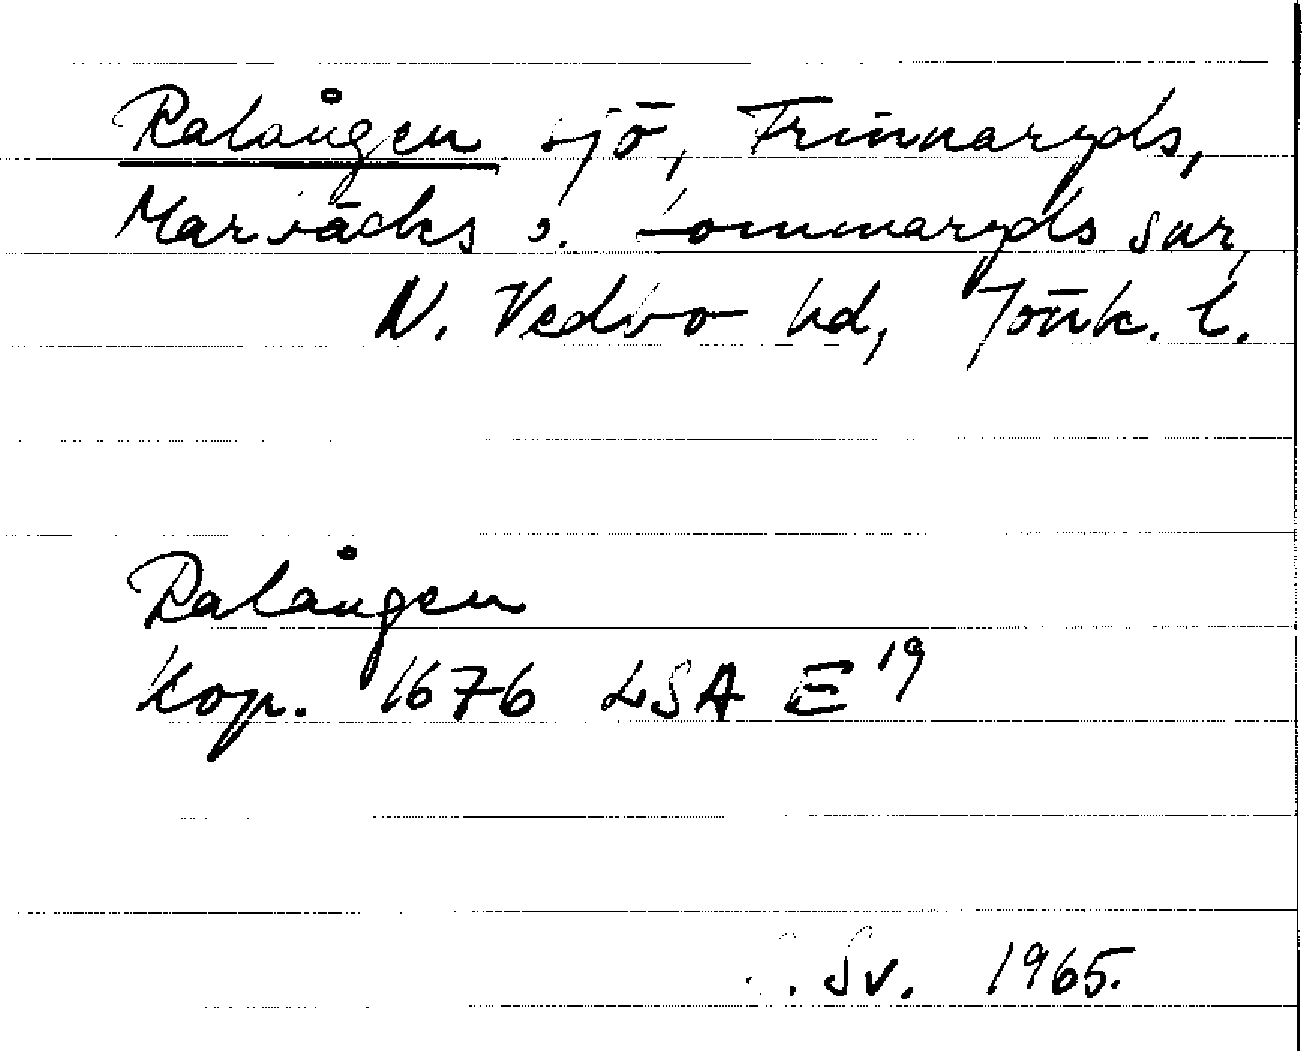 Ralången sjö, Frinnaryds,
Marbäcks o. Lommaryds snr,
N. Vedbo hd, Jönk. l.
Ralången
Kop. 1676 LSA E 19
Sv. 1965.